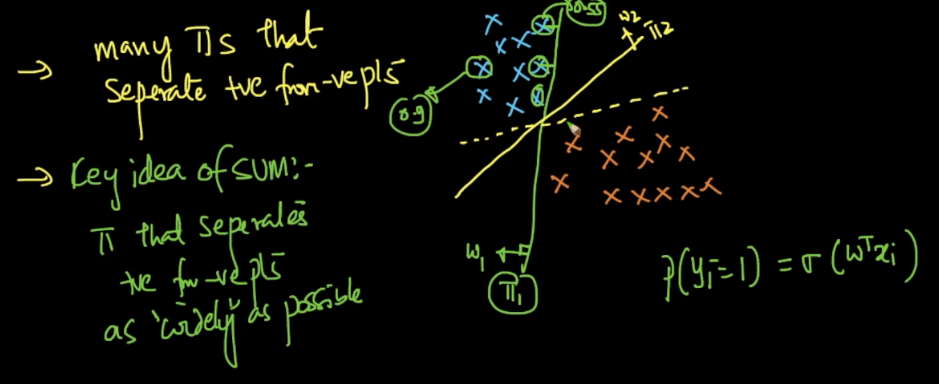 → many πs that
seperate +ve from -ve pts
→ Key idea of SVM:-
π that seperates
+ve fm -ve pts
as "widely" as possible
0.55
w2
π2
0.9
w1
π1
P(yi=1) = σ(wᵀxi)